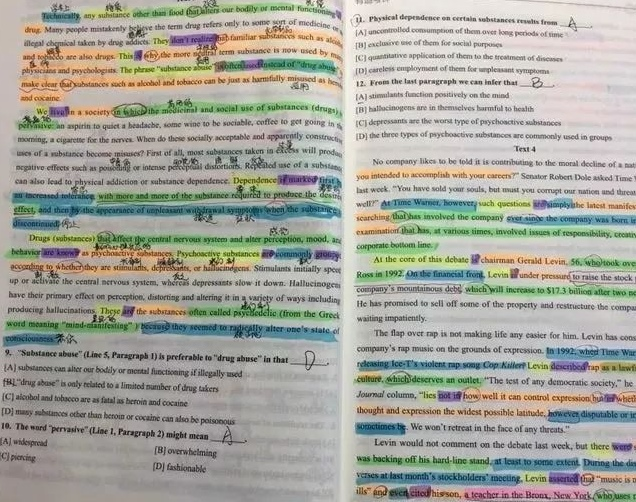 Technically, any substance other than food that alters our bodily or mental functioning
drug. Many people mistakenly believe the term drug refers only to some sort of medicine or
illegal chemical taken by drug addicts. They don't realize that familiar substances such as alcohol
and tobacco are also drugs. This is why the more neutral term substance is now used by many
physicians and psychologists. The phrase "substance abuse" is often used instead of "drug abuse"
make clear that substances such as alcohol and tobacco can be just as harmfully misused as heroin
and cocaine.
We live in a society in which the medicinal and social use of substances (drugs)
pervasive: an aspirin to quiet a headache, some wine to be sociable, coffee to get going in the
morning, a cigarette for the nerves. When do these socially acceptable and apparently constructive
uses of a substance become misuses? First of all, most substances taken in excess will produce
negative effects such as poisoning or intense perceptual distortions. Repeated use of a substance
can also lead to physical addiction or substance dependence. Dependence is marked first
an increased tolerance, with more and more of the substance required to produce the desired
effect, and then by the appearance of unpleasant withdrawal symptoms when the substance
discontinued.
Drugs (substances) that affect the central nervous system and alter perception, mood, and
behavior are known as psychoactive substances. Psychoactive substances are commonly grouped
according to whether they are stimulants, depressants, or hallucinogens. Stimulants initially speed
up or activate the central nervous system, whereas depressants slow it down. Hallucinogens
have their primary effect on perception, distorting and altering it in a variety of ways including
producing hallucinations. These are the substances often called psychedelic (from the Greek
word meaning "mind-manifesting") because they seemed to radically alter one's state of
consciousness.
9. "Substance abuse" (Line 5, Paragraph 1) is preferable to "drug abuse" in that D
[A] substances can alter our bodily or mental functioning if illegally used
[B] "drug abuse" is only related to a limited number of drug takers
[C] alcohol and tobacco are as fatal as heroin and cocaine
[D] many substances other than heroin or cocaine can also be poisonous
10. The word "pervasive" (Line 1, Paragraph 2) might mean A
[A] widespread [B] overwhelming
[C] piercing [D] fashionable
11. Physical dependence on certain substances results from A
[A] uncontrolled consumption of them over long periods of time
[B] exclusive use of them for social purposes
[C] quantitative application of them to the treatment of diseases
[D] careless employment of them for unpleasant symptoms
12. From the last paragraph we can infer that B
[A] stimulants function positively on the mind
[B] hallucinogens are in themselves harmful to health
[C] depressants are the worst type of psychoactive substances
[D] the three types of psychoactive substances are commonly used in groups
Text 4
No company likes to be told it is contributing to the moral decline of a
you intended to accomplish with your careers?" Senator Robert Dole asked Time
last week. "You have sold your souls, but must you corrupt our nation and threaten
well?" At Time Warner, however, such questions are simply the latest manifestation
searching that has involved the company ever since the company was born
examination that has, at various times, involved issues of responsibility, creative
corporate bottom line.
At the core of this debate is chairman Gerald Levin, 56, who took over
Ross in 1992. On the financial front, Levin is under pressure to raise the stock
company's mountainous debt, which will increase to $17.3 billion after two
He has promised to sell off some of the property and restructure the company
waiting impatiently.
The flap over rap is not making life any easier for him. Levin has
company's rap music on the grounds of expression. In 1992, when Time Warner
releasing Ice-T's violent rap song Cop Killer, Levin described rap as a lawful
culture, which deserves an outlet. "The test of any democratic society," he
Journal column, "lies not in how well it can control expression but in whether
thought and expression the widest possible latitude, however disputable or
sometimes be. We won't retreat in the face of any threats."
Levin would not comment on the debate last week, but there were
was backing off his hard-line stand, at least to some extent. During the
verses at last month's stockholders' meeting, Levin asserted that "music is
ills" and even cited his son, a teacher in the Bronx, New York, who